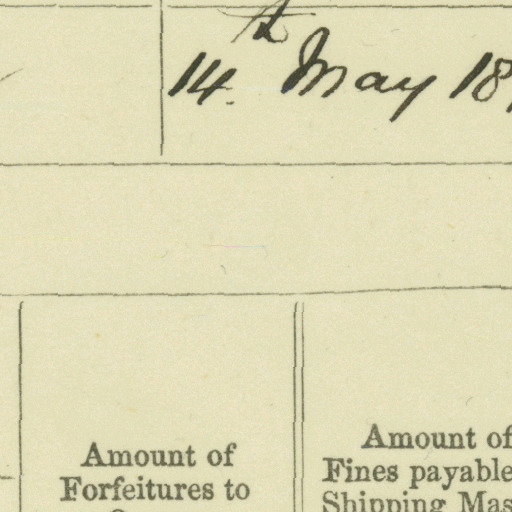 14th. May 18
Amount of
Forfeitures to
Amount of
Fines payable
Shipping Mas